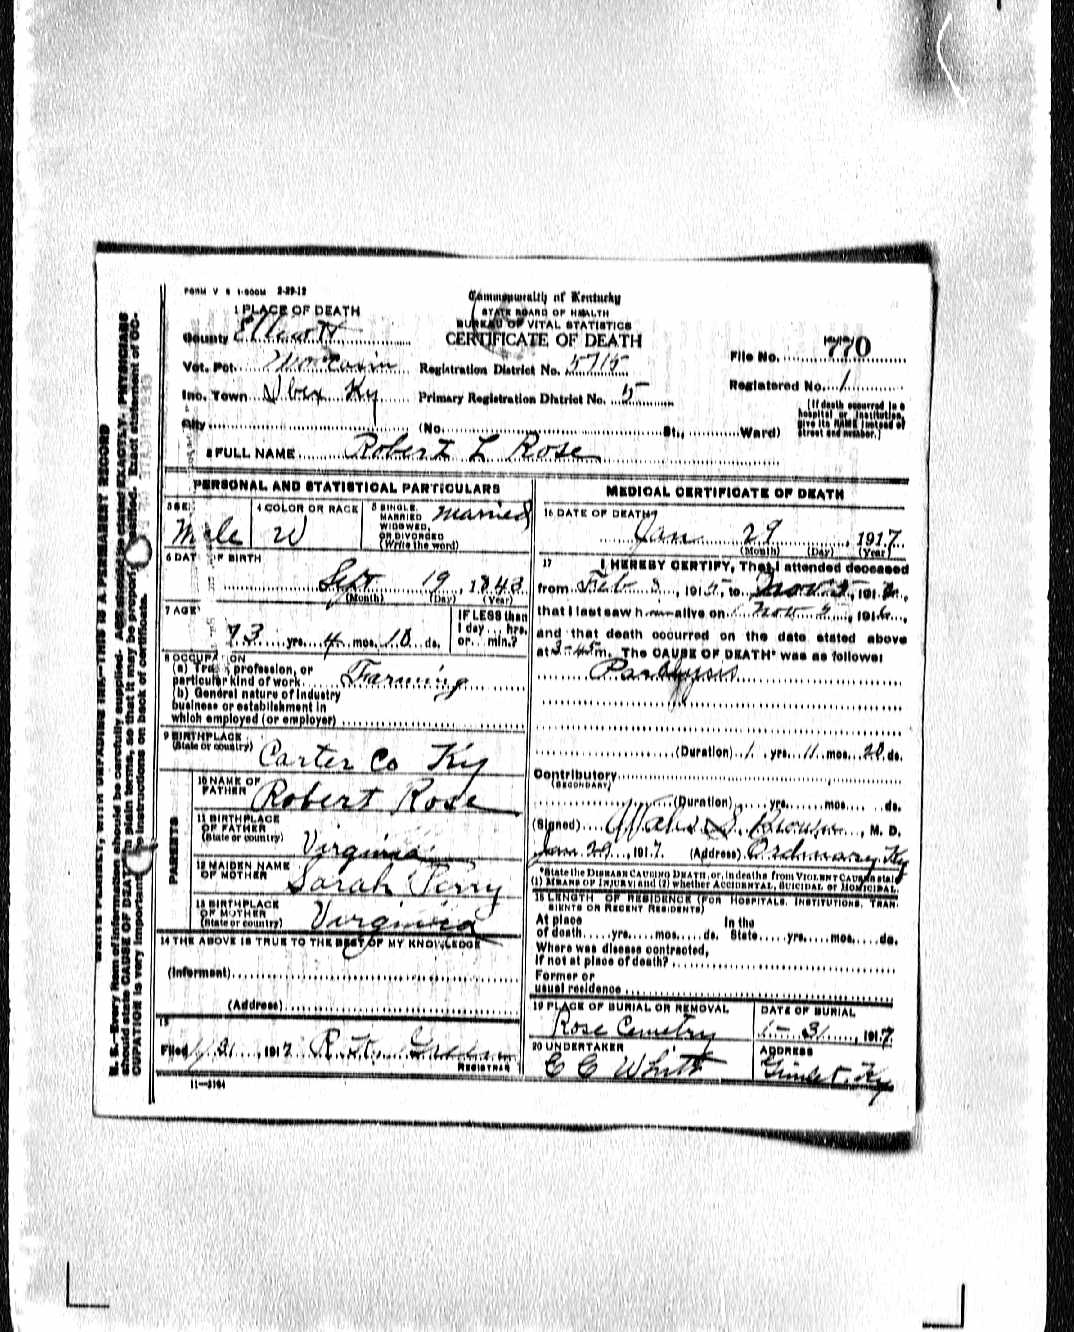 FORM V S 1-500M 2-29-12
Commonwealth of Kentucky
STATE BOARD OF HEALTH
BUREAU OF VITAL STATISTICS
CERTIFICATE OF DEATH
1 PLACE OF DEATH
County Elliott
Vot. Pct.
Registration District No. 5715
File No. 770
Inc. Town Ibex Ky
Primary Registration District No. 5
Registered No. 1
City (No. St., Ward)
[If death occurred in a hospital or institution, give its NAME instead of street and number.]
2 FULL NAME Robert L Rose
PERSONAL AND STATISTICAL PARTICULARS
3 SEX Male
4 COLOR OR RACE W
5 SINGLE, MARRIED WIDOWED, OR DIVORCED (Write the word) Married
6 DATE OF BIRTH
Sept 19, 1843
(Month) (Day) (Year)
7 AGE
73 yrs. 4 mos. 10 ds.
IF LESS than 1 day... hrs. or... min.?
8 OCCUPATION
(a) Trade, profession, or
particular kind of work Farming
(b) General nature of industry
business or establishment in
which employed (or employer)
9 BIRTHPLACE
(State or country) Carter Co Ky
PARENTS
10 NAME OF FATHER Robert Rose
11 BIRTHPLACE OF FATHER (State or country) Virginia
12 MAIDEN NAME OF MOTHER Sarah Perry
13 BIRTHPLACE OF MOTHER (State or country) Virginia
14 THE ABOVE IS TRUE TO THE BEST OF MY KNOWLEDGE
(Informant)
(Address)
15
Filed 1/31, 1917 R. H.
REGISTRAR
11-3184
MEDICAL CERTIFICATE OF DEATH
16 DATE OF DEATH
Jan 29, 1917
(Month) (Day) (Year)
17 I HEREBY CERTIFY, That I attended deceased
from Feb 3, 1915, to Nov 5, 191
that I last saw h alive on Nov 5, 1916,
and that death occurred on the date stated above
at 3-45 m. The CAUSE OF DEATH* was as follows:
Paralysis
(Duration) 1 yrs. 11 mos. 20 ds.
Contributory
(SECONDARY)
(Duration) yrs. mos. ds.
(Signed) , M. D.
Jan 29, 1917. (Address) Ordinary, Ky
*State the DISEASE CAUSING DEATH, or, in deaths from VIOLENT CAUSES state
(1) MEANS OF INJURY; and (2) whether ACCIDENTAL, SUICIDAL or HOMICIDAL.
18 LENGTH OF RESIDENCE (FOR HOSPITALS, INSTITUTIONS, TRANSIENTS OR RECENT RESIDENTS)
At place In the
of death yrs. mos. ds. State yrs. mos. ds.
Where was disease contracted,
if not at place of death?
Former or
usual residence
19 PLACE OF BURIAL OR REMOVAL
Rose Cemetry
DATE OF BURIAL
1-31, 1917
20 UNDERTAKER
E C Whitt
ADDRESS
Gimlet, Ky